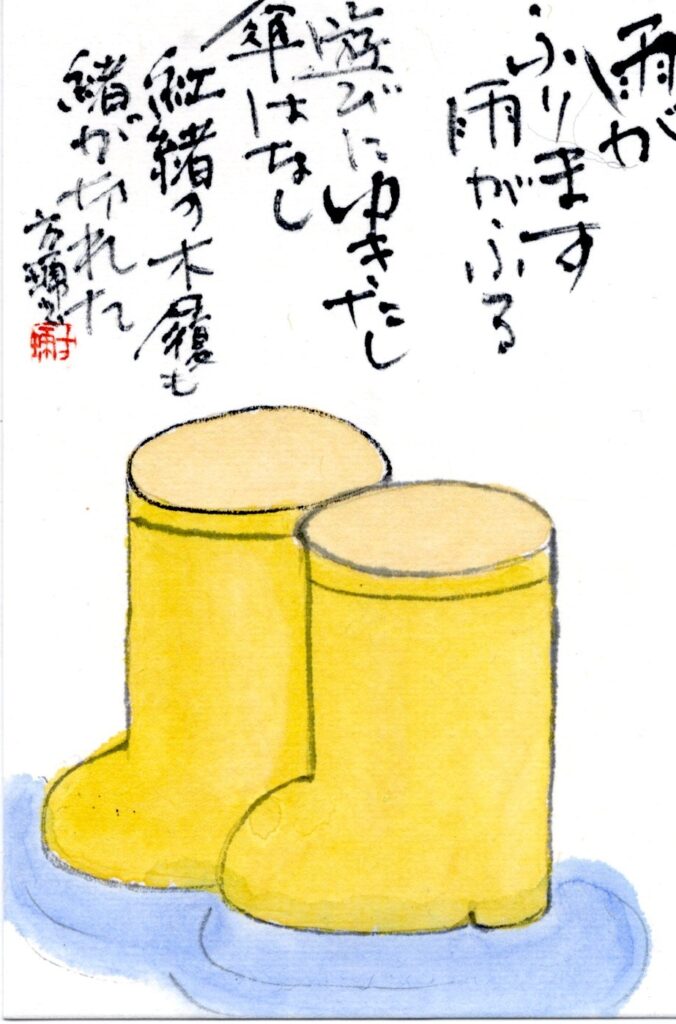 雨が
ふります
雨がふる
遊びにゆきたし
傘はなし
紅緒の木履も
緒が切れた